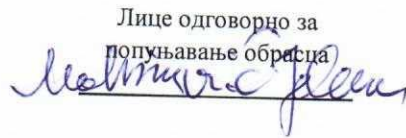 Лице одговорно за
попуњавање обрасца